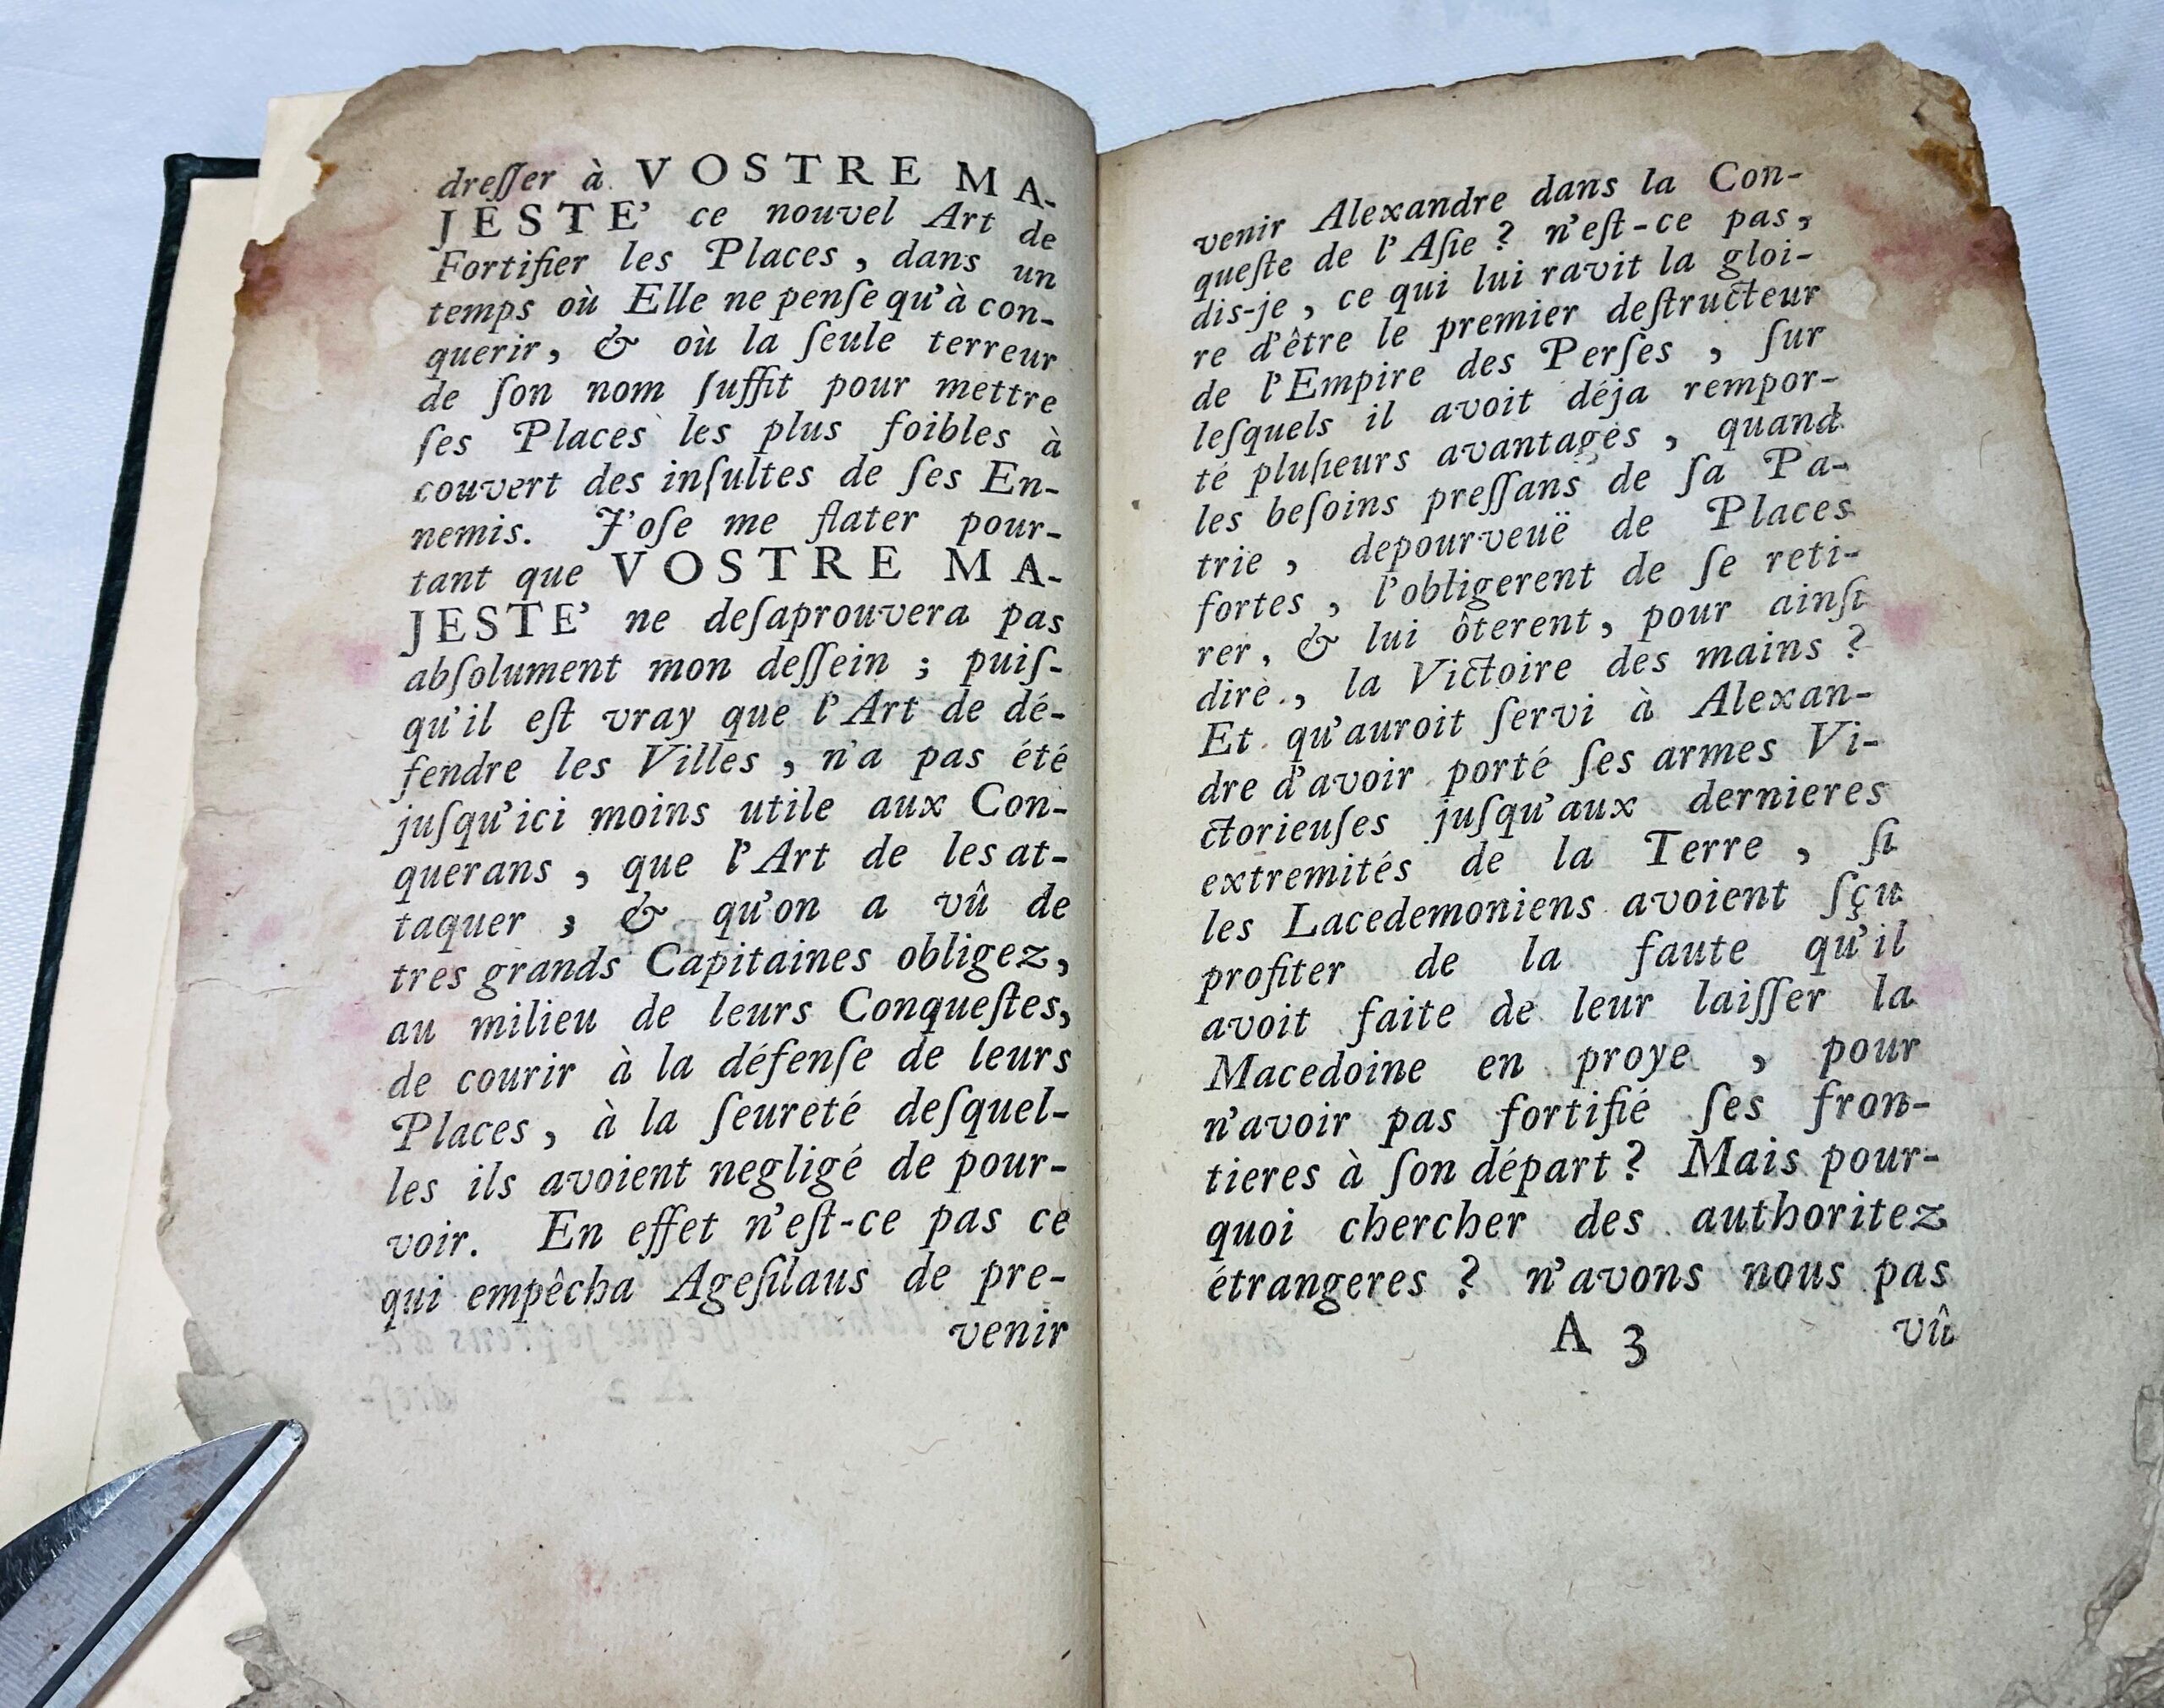 dreſſer à VOSTRE MA-
JESTE' ce nouvel Art de
Fortifier les Places, dans un
temps où Elle ne penſe qu'à con-
querir, & où la ſeule terreur
de ſon nom ſuffit pour mettre
ſes Places les plus foibles à
couvert des inſultes de ſes En-
nemis. J'oſe me flater pour-
tant que VOSTRE MA-
JESTE' ne deſaprouvera pas
abſolument mon deſſein ; puiſ-
qu'il eſt vray que l'Art de dé-
fendre les Villes, n'a pas été
juſqu'ici moins utile aux Con-
querans, que l'Art de les at-
taquer, & qu'on a vû de
tres grands Capitaines obligez,
au milieu de leurs Conqueſtes,
de courir à la défenſe de leurs
Places, à la ſeureté deſquel-
les ils avoient negligé de pour-
voir. En effet n'eſt-ce pas ce
qui empêcha Ageſilaus de pre-
venir
venir Alexandre dans la Con-
queſte de l'Aſie ? n'eſt-ce pas,
dis-je, ce qui lui ravit la gloi-
re d'être le premier deſtructeur
de l'Empire des Perſes, ſur
leſquels il avoit déja rempor-
té pluſieurs avantages, quand
les beſoins preſſans de ſa Pa-
trie, depourveuë de Places
fortes, l'obligerent de ſe reti-
rer, & lui ôterent, pour ainſi
dire, la Victoire des mains ?
Et qu'auroit ſervi à Alexan-
dre d'avoir porté ſes armes Vi-
ctorieuſes juſqu'aux dernieres
extremités de la Terre, ſi
les Lacedemoniens avoient ſçu
profiter de la faute qu'il
avoit faite de leur laiſſer la
Macedoine en proye, pour
n'avoir pas fortifié ſes fron-
tieres à ſon départ ? Mais pour-
quoi chercher des authoritez
étrangeres ? n'avons nous pas
A 3 vû